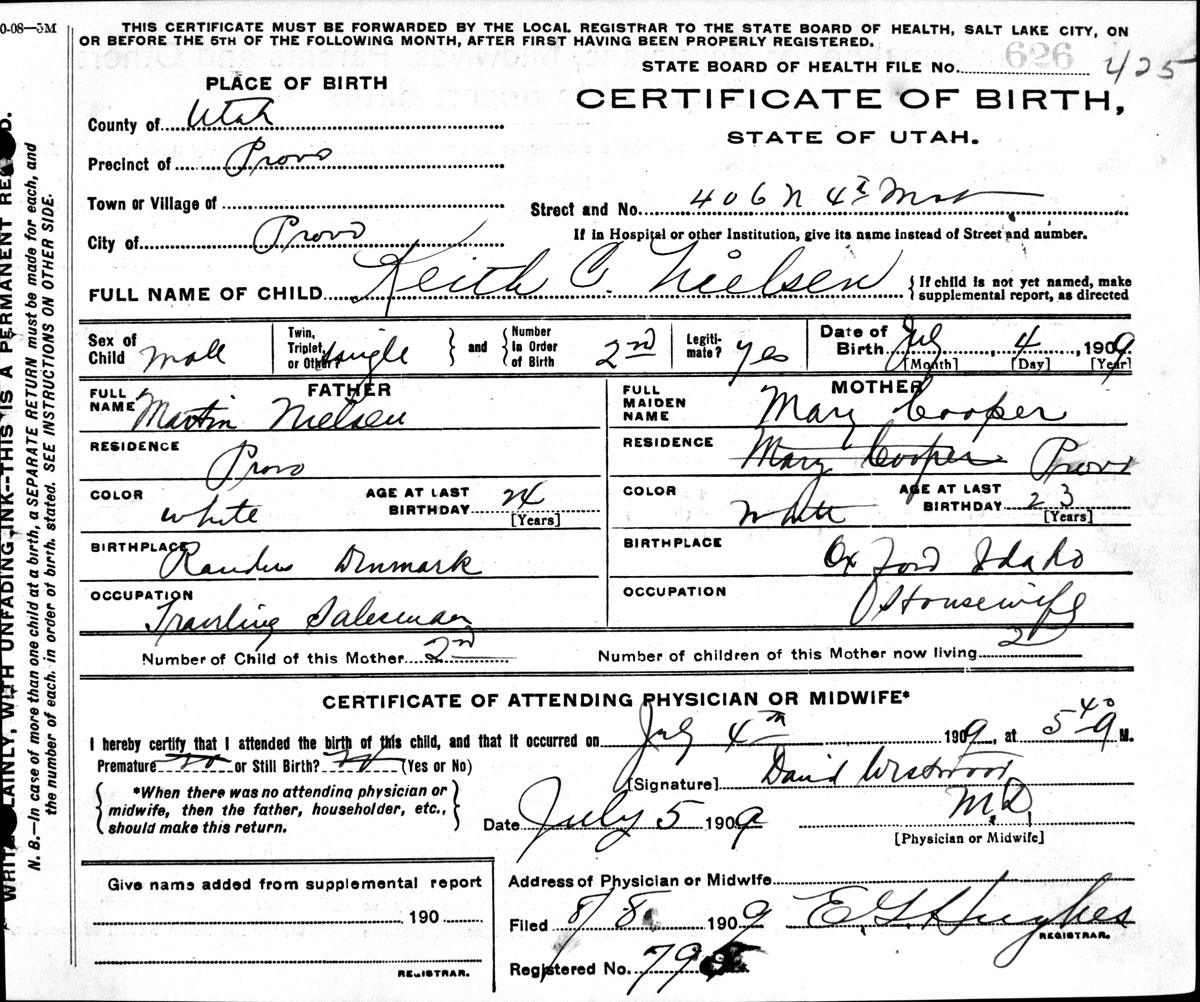 0-08—5M
THIS CERTIFICATE MUST BE FORWARDED BY THE LOCAL REGISTRAR TO THE STATE BOARD OF HEALTH, SALT LAKE CITY, ON
OR BEFORE THE 5TH OF THE FOLLOWING MONTH, AFTER FIRST HAVING BEEN PROPERLY REGISTERED.
STATE BOARD OF HEALTH FILE No. 425
PLACE OF BIRTH
CERTIFICATE OF BIRTH,
STATE OF UTAH.
County of Utah
Precinct of Provo
Town or Village of
Street and No. 406 N 4th
City of Provo
If in Hospital or other Institution, give its name instead of Street and number.
FULL NAME OF CHILD Keith C. Nielsen { If child is not yet named, make
supplemental report, as directed
Sex of Child Male
Twin, Triplet, or Other? Single } and { Number in Order of Birth 2nd
Legiti-mate? yes
Date of Birth July, 4, 1909
[Month] [Day] [Year]
FATHER
FULL NAME Martin Nielsen
RESIDENCE Provo
COLOR white AGE AT LAST BIRTHDAY 24
[Years]
BIRTHPLACE Randers Denmark
OCCUPATION Traveling Salesman
MOTHER
FULL MAIDEN NAME Mary Cooper
RESIDENCE Mary Cooper Provo
COLOR White AGE AT LAST BIRTHDAY 23
[Years]
BIRTHPLACE Oxford Idaho
OCCUPATION Housewife
Number of Child of this Mother 2nd Number of children of this Mother now living 2
CERTIFICATE OF ATTENDING PHYSICIAN OR MIDWIFE*
I hereby certify that I attended the birth of this child, and that it occurred on July 4th 1909, at 5 40 a M.
Premature no or Still Birth? no (Yes or No)
[Signature] David Westwood
*When there was no attending physician or
midwife, then the father, householder, etc.,
should make this return.
M.D.
Date July 5 1909
[Physician or Midwife]
Give name added from supplemental report
190
REGISTRAR.
Address of Physician or Midwife
Filed 8/8 1909 E. G. Hughes
REGISTRAR.
Registered No. 79
WRITE PLAINLY, WITH UNFADING INK--THIS IS A PERMANENT RECORD.
N. B.—In case of more than one child at a birth, a SEPARATE RETURN must be made for each, and
the number of each, in order of birth, stated. SEE INSTRUCTIONS ON OTHER SIDE.